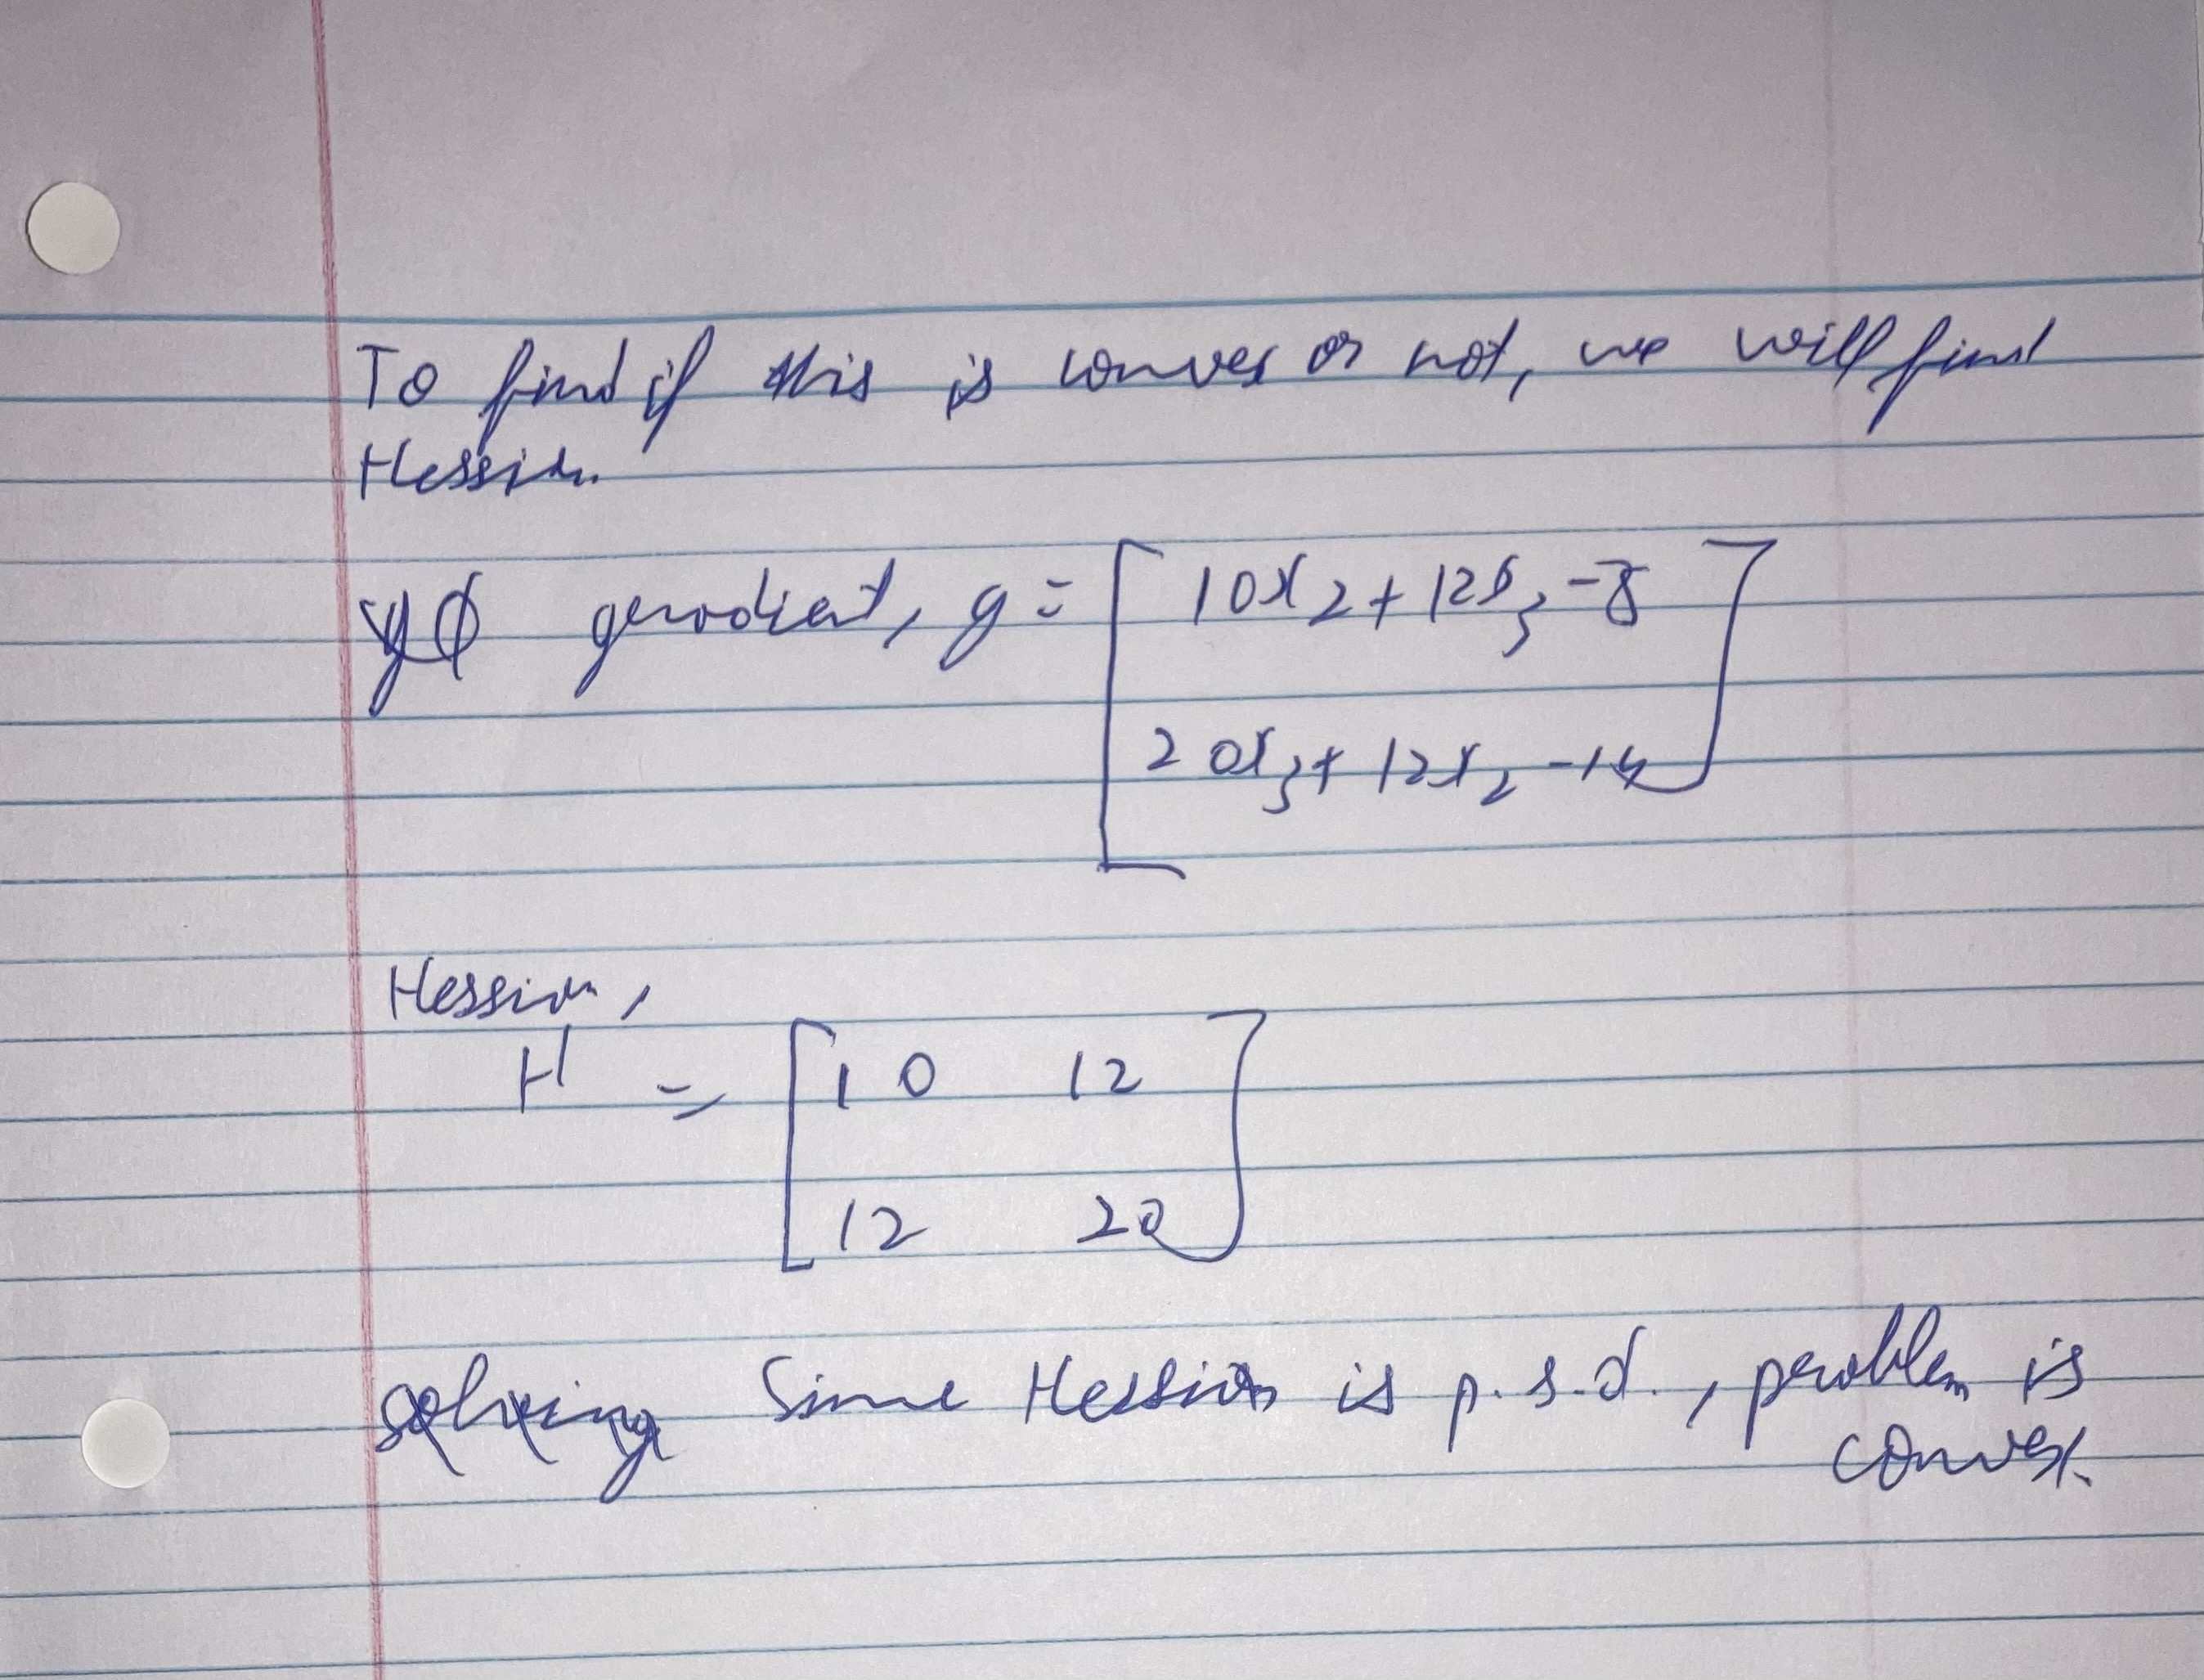 To find if this is convex or not, we will find
Hessian.
gradient, g = [ 10x₂ + 12x₃ - 8
20x₃ + 12x₂ - 14 ]
Hessian,
H = [ 10 12
12 20 ]
solving Since Hessian is p.s.d., problem is
convex.